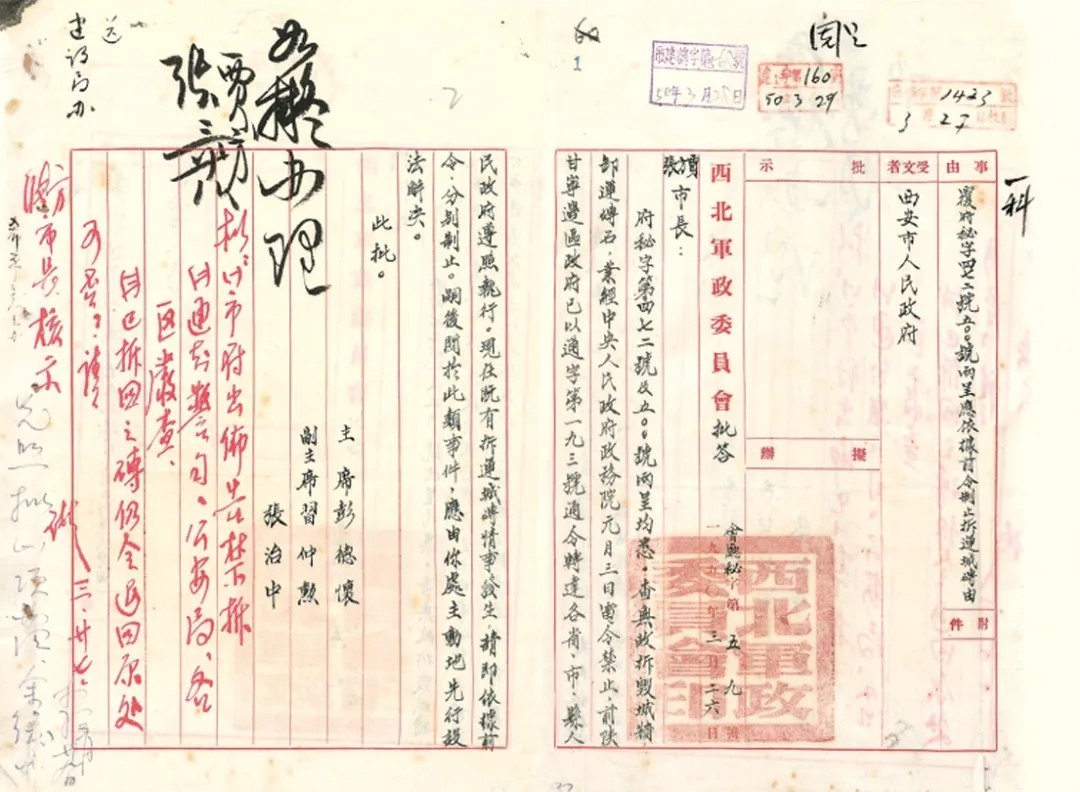 一科
閱
1423
3月27
160
50 3 29
50年3月25日
1
事由
覆府秘字四七二號五〇〇號兩呈應依據前令制止拆運城磚由
附件
受文者
西安市人民政府
批示
擬辦
西北軍政委員會批答
會熙秘字第五九號
一九五〇年三月二六日
西北軍政委員會印
市長：
府秘字第四七二號及五〇〇號兩呈均悉。查無故拆毀城牆
卸運磚石，業經中央人民政府政務院元月三日電令禁止，前陝
甘寧邊區政府已以通字第一九三號通令轉達各省、市、縣人
民政府遵照執行。現在既有拆運城磚情事發生，請即依據前
令，分別制止。嗣後關於此類事件，應由你處主動地先行設
法解決。
此批。
主席彭德懷
副主席習仲勲
張治中
如擬辦理
賈
張
市府出佈告禁止拆
通知警司、公安局、各
区嚴查、
已拆回之磚仍令退回原处
請
市長核示
三·廿七·
送
建设局办